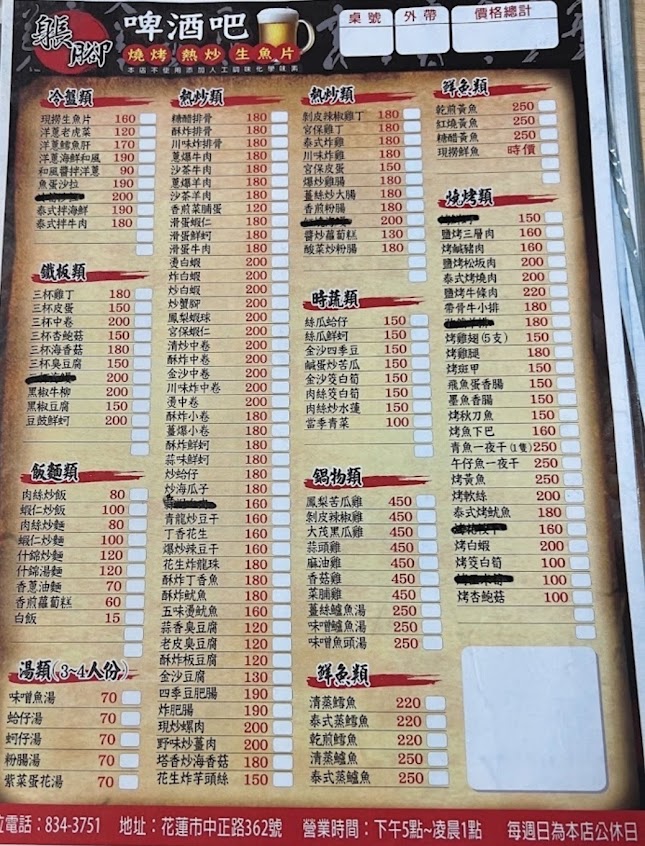 躼腳
啤酒吧
燒烤 熱炒 生魚片
本店不使用添加人工調味化學味素
桌號 外帶 價格總計
冷盤類
現撈生魚片 160
洋蔥老虎菜 120
洋蔥鱈魚肝 170
洋蔥海鮮和風 190
和風醬拌洋蔥 90
魚蛋沙拉 190
200
泰式拌海鮮 190
泰式拌牛肉 180
鐵板類
三杯雞丁 180
三杯皮蛋 150
三杯中卷 200
三杯杏鮑菇 150
三杯海香菇 180
三杯臭豆腐 150
200
黑椒牛柳 200
黑椒豆腐 150
豆豉鮮蚵 200
飯麵類
肉絲炒飯 80
蝦仁炒飯 100
肉絲炒麵 80
蝦仁炒麵 100
什錦炒麵 120
什錦湯麵 120
香蔥油麵 70
香煎蘿蔔糕 60
白飯 15
湯類(3~4人份)
味噌魚湯 70
蛤仔湯 70
蚵仔湯 70
粉腸湯 70
紫菜蛋花湯 70
熱炒類
糖醋排骨 180
酥炸排骨 180
川味炸排骨 180
蔥爆牛肉 180
沙茶牛肉 180
蔥爆羊肉 180
沙茶羊肉 180
香煎菜脯蛋 120
滑蛋蝦仁 180
滑蛋鮮蚵 180
滑蛋牛肉 180
燙白蝦 200
炸白蝦 200
炒白蝦 200
炒蟹腳 200
鳳梨蝦球 200
宮保蝦仁 200
清炒中卷 200
酥炸中卷 200
金沙中卷 200
川味炸中卷 200
燙中卷 200
酥炸小卷 180
薑爆小卷 180
酥炸鮮蚵 180
蒜味鮮蚵 180
炒蛤仔 180
炒海瓜子 180
160
青龍炒豆干 160
丁香花生 160
爆炒辣豆干 160
花生炸龍珠 180
酥炸丁香魚 180
酥炸魷魚 180
五味燙魷魚 160
蒜香臭豆腐 120
老皮臭豆腐 120
酥炸板豆腐 120
金沙豆腐 130
四季豆肥腸 190
炸肥腸 190
現炒螺肉 200
野味炒薑肉 200
塔香炒海香菇 180
花生炸芋頭絲 150
熱炒類
剝皮辣椒雞丁 180
宮保雞丁 180
泰式炸雞 180
川味炸雞 180
宮保皮蛋 150
爆炒雞腸 180
薑絲炒大腸 180
香煎粉腸 180
200
醬炒蘿蔔糕 130
酸菜炒粉腸 180
時蔬類
絲瓜蛤仔 150
絲瓜鮮蚵 150
金沙四季豆 150
鹹蛋炒苦瓜 150
金沙筊白筍 150
肉絲筊白筍 150
肉絲炒水蓮 150
當季青菜 100
鍋物類
鳳梨苦瓜雞 450
剝皮辣椒雞 450
大茂黑瓜雞 450
蒜頭雞 450
麻油雞 450
香菇雞 450
菜脯雞 450
薑絲鱸魚湯 250
味噌鱸魚湯 250
味噌魚頭湯 250
鮮魚類
清蒸鱈魚 220
泰式蒸鱈魚 220
乾煎鱈魚 220
清蒸鱸魚 250
泰式蒸鱸魚 250
鮮魚類
乾煎黃魚 250
紅燒黃魚 250
糖醋黃魚 250
現撈鮮魚 時價
燒烤類
150
鹽烤三層肉 160
烤鹹豬肉 160
鹽烤松坂肉 200
泰式烤燒肉 200
鹽烤牛條肉 220
帶骨牛小排 180
180
烤雞翅(5支) 150
烤雞腿 180
烤斑甲 150
飛魚蛋香腸 150
墨魚香腸 150
烤秋刀魚 150
烤魚下巴 160
青魚一夜干(1隻) 250
午仔魚一夜干 250
烤黃魚 250
烤軟絲 200
泰式烤魷魚 180
160
烤白蝦 200
烤筊白筍 100
100
烤杏鮑菇 100
位電話：834-3751 地址：花蓮市中正路362號 營業時間：下午5點~凌晨1點 每週日為本店公休日